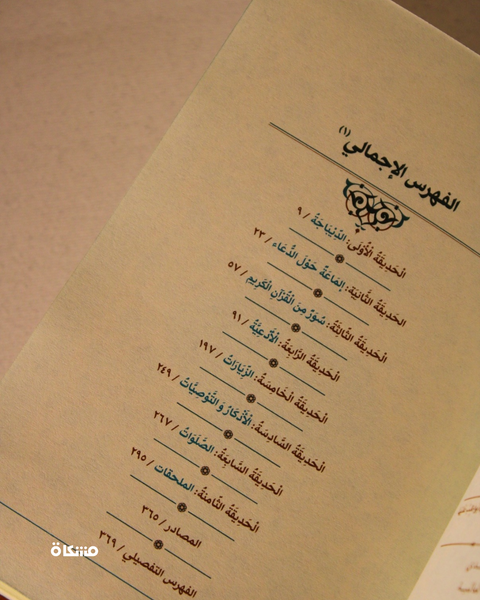 الفهرس الإجمالي (١)
الْحَدِيقَةُ الْأُوْلَى: الدِّيْبَاجَةُ / ٩
الْحَدِيقَةُ الثَّانِيَة: إِلمَاعَةٌ حَوْلَ الدُّعَاء / ٢٣
الْحَدِيقَةُ الثَّالِثَةُ: سُوَرٌ مِنَ الْقُرْآنِ الْكَرِيمِ / ٥٧
الْحَدِيقَةُ الرَّابِعَةُ: الْأَدْعِيَّةُ / ٩١
الْحَدِيقَةُ الْخَامِسَةُ: الزِّيَارَاتُ / ١٩٧
الْحَدِيقَةُ السَّادِسَةُ: الْأَذْكَارُ وَ التَّوْصِيَّاتُ / ٢٤٩
الْحَدِيقَةُ السَّابِعَةُ: الصَّلَوَاتُ / ٢٦٧
الْحَدِيقَةُ الثَّامِنَةُ: الملحقات / ٢٩٥
المصادر / ٣٦٥
الفهرس التفصيلي / ٣٦٩
مشكاة